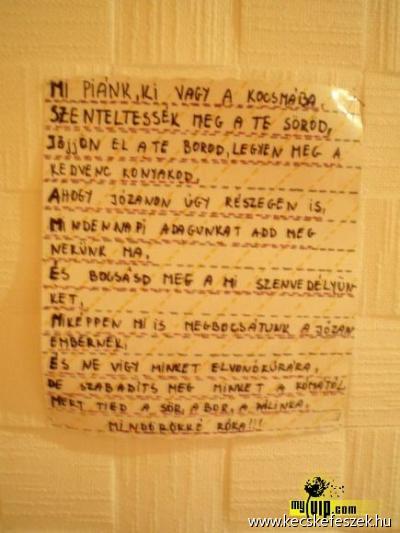 MI PIÁNK, KI VAGY A KOCSMÁBA,
SZENTELTESSÉK MEG A TE SÖRÖD,
JÖJJÖN EL A TE BOROD, LEGYEN MEG A
KEDVENC KONYAKOD,
AHOGY JÓZANON ÚGY RÉSZEGEN IS,
MINDENNAPI ADAGUNKAT ADD MEG
NEKÜNK MA,
ÉS BOCSÁSD MEG A MI SZENVEDÉLYÜN
KET,
MIKÉPPEN MI IS MEGBOCSÁTUNK A JÓZAN
EMBERNEK,
ÉS NE VIGY MINKET ELVONÓKÚRÁRA,
DE SZABADÍTS MEG MINKET A KÓMÁTÓL
MERT TIÉD A SÖR, A BOR, A PÁLINKA,
MINDÖRÖKKÉ RÓKA!!!
myVIP.com
www.kecskefeszek.hu